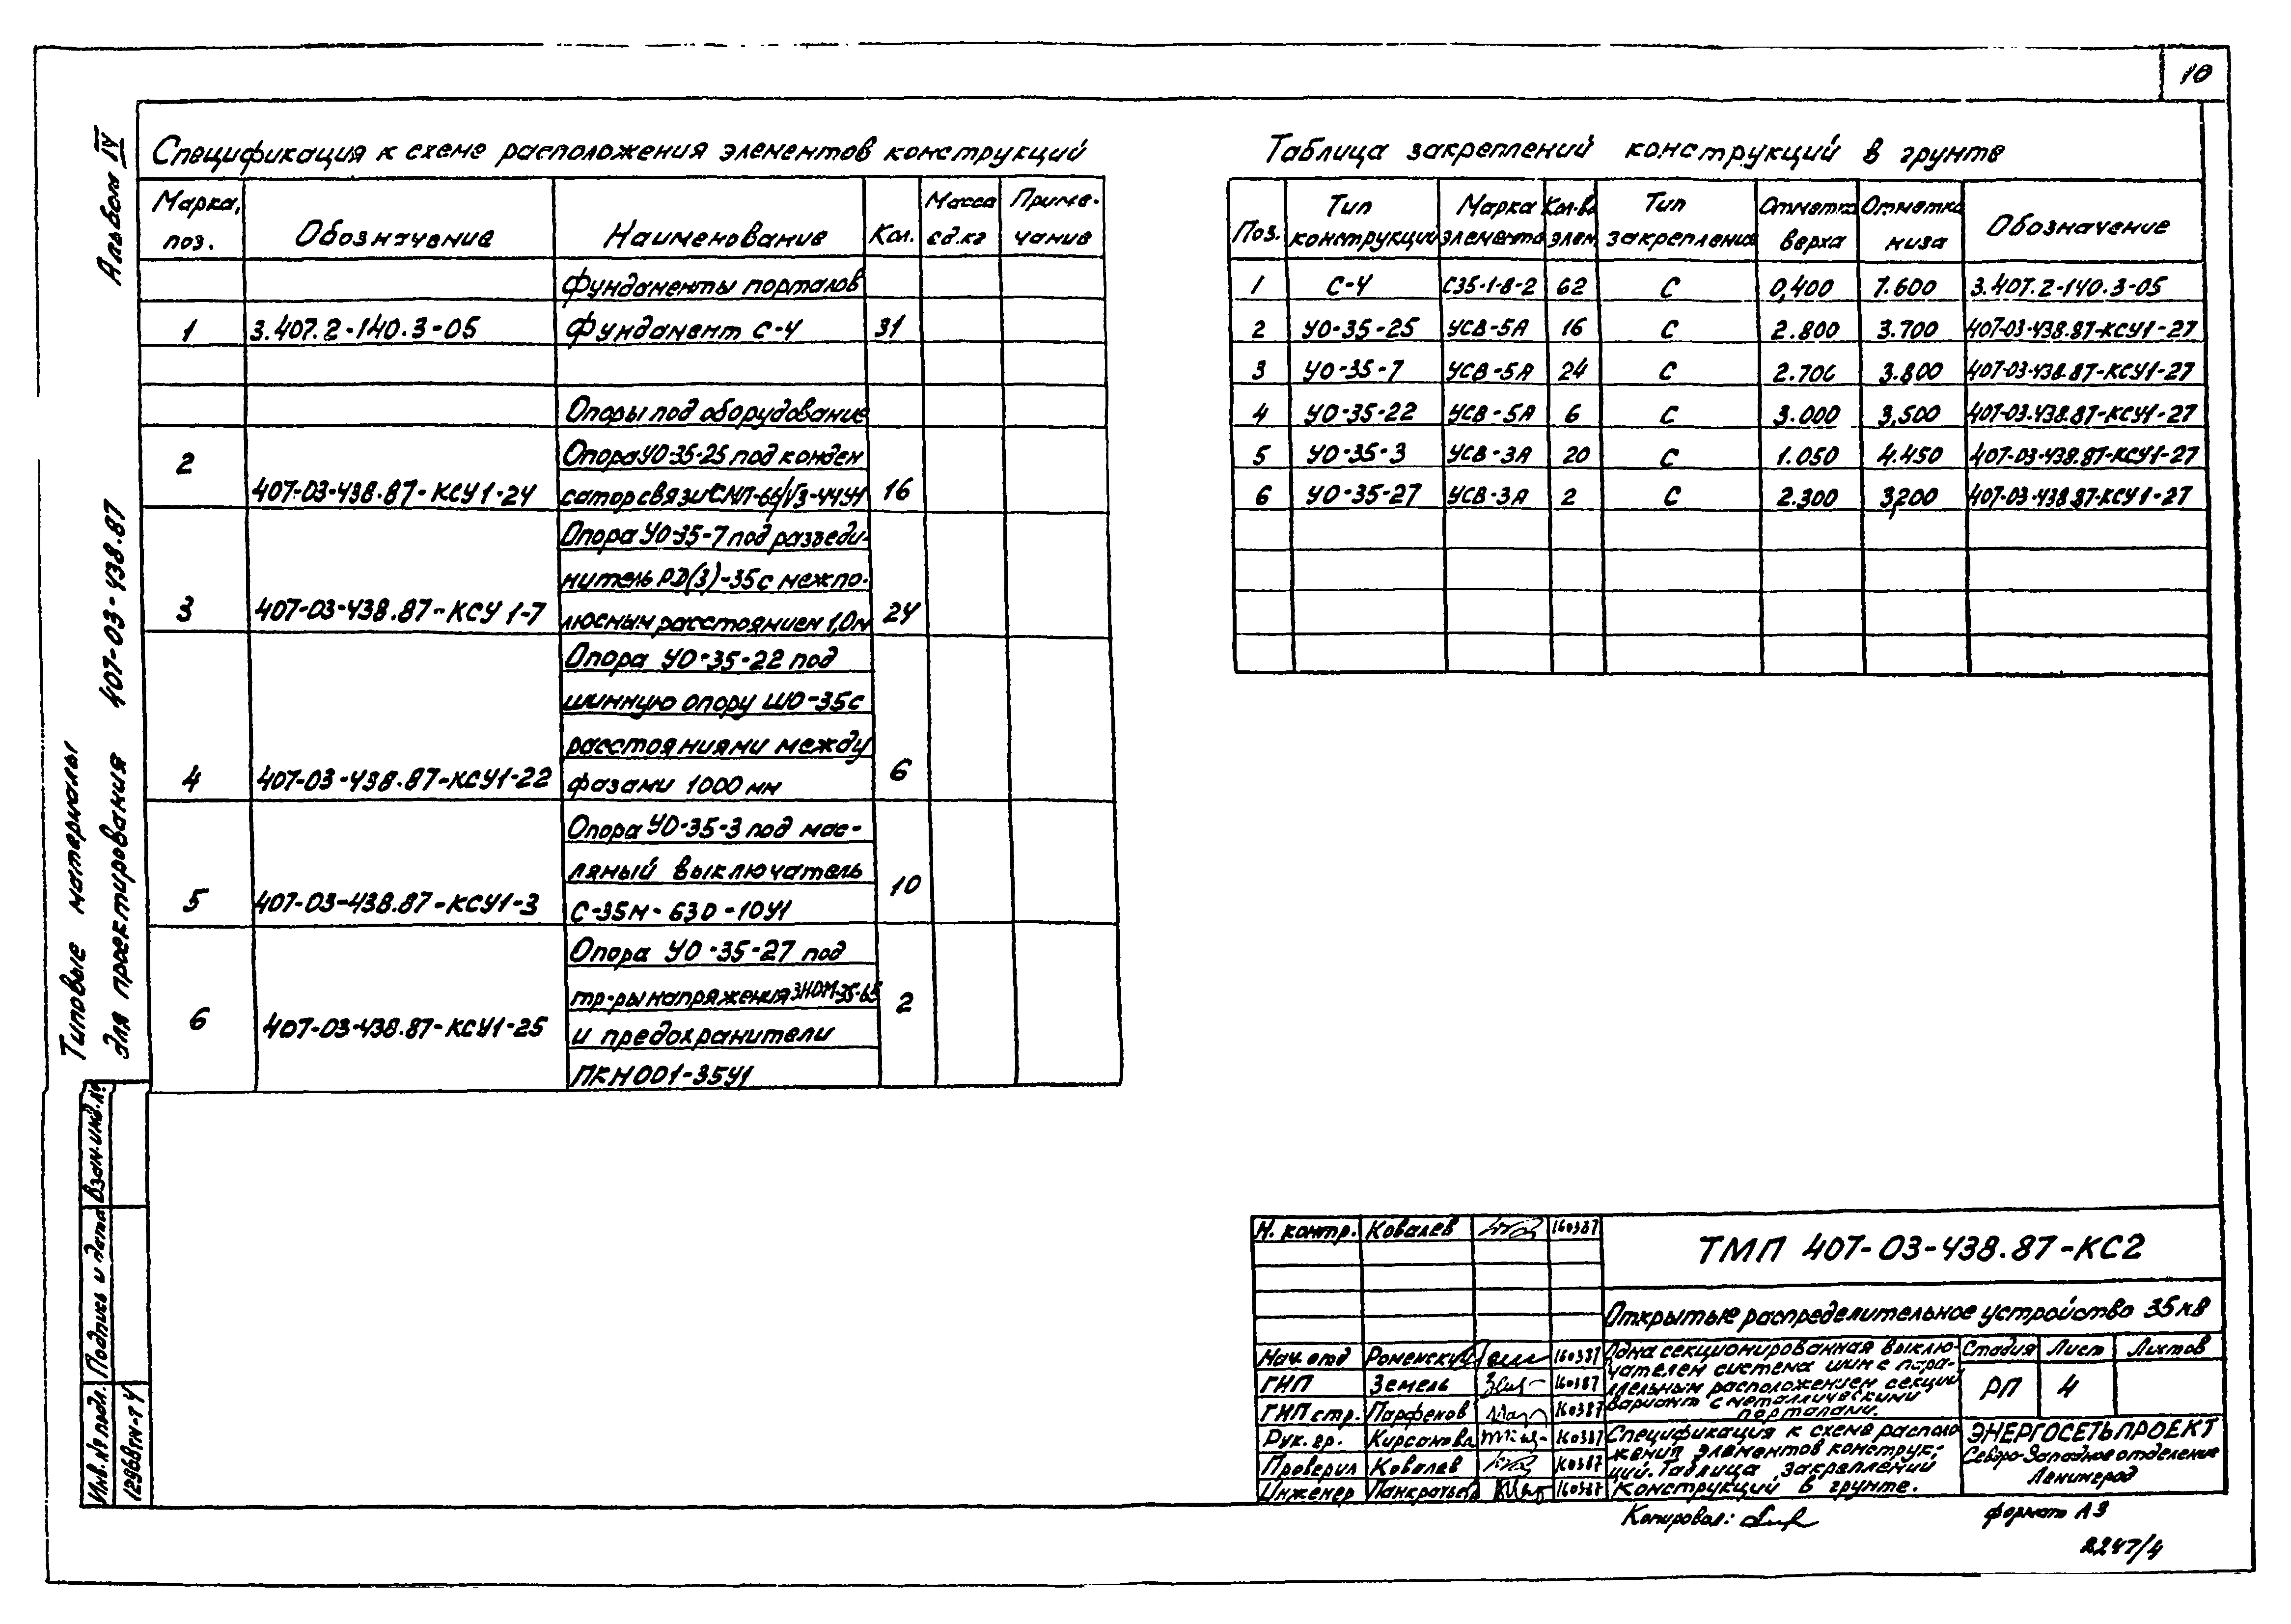 10
Альбом IV
Типовые материалы
для проектирования 407-03-438.87
Спецификация к схеме расположения элементов конструкций
Марка, поз. Обозначение Наименование Кол. Масса ед.кг Приме- чание
Фундаменты порталов
1 3.407.2-140.3-05 Фундамент С-4 31
Опоры под оборудование
2 Опора УО-35-25 под конден
407-03-438.87-КСУ1-24 сатор связи СМП-66/√3-4,4У1 16
Опора УО-35-7 под разъеди-
нитель РД(З)-35 с межпо-
3 407-03-438.87-КСУ1-7 люсным расстоянием 1,0м 24
Опора УО-35-22 под
шинную опору ШО-35 с
расстояниями между
4 407-03-438.87-КСУ1-22 фазами 1000 мм 6
Опора УО-35-3 под мас-
ляный выключатель
5 407-03-438.87-КСУ1-3 С-35М-630-10У1 10
Опора УО-35-27 под
тр-ры напряжения ЗНОМ-35-65
6 407-03-438.87-КСУ1-25 и предохранители 2
ПКН001-35У1
Таблица закреплений конструкций в грунте
Поз. Тип конструкции Марка элемента Кол-во элем. Тип закрепления Отметка верха Отметка низа Обозначение
1 С-4 С35-1-8-2 62 С 0,400 7.600 3.407.2-140.3-05
2 УО-35-25 УСВ-5А 16 С 2.800 3.700 407-03-438.87-КСУ1-27
3 УО-35-7 УСВ-5А 24 С 2.700 3.800 407-03-438.87-КСУ1-27
4 УО-35-22 УСВ-5А 6 С 3.000 3,500 407-03.438.87-КСУ1-27
5 УО-35-3 УСВ-3А 20 С 1.050 4.450 407-03-438.87-КСУ1-27
6 УО-35-27 УСВ-3А 2 С 2.300 3,200 407-03-438.87-КСУ1-27
Взам.инв.№
Подпись и дата
Инв.№ подл.
Н. контр. Ковалев 160387
ТМП 407-03-438.87-КС2
Открытые распределительное устройство 35кВ
Нач. отд Роменский 160387
ГИП Земель 160387
ГИП стр. Парфенов 160387
Рук. гр. Кирсанова 160387
Проверил Ковалев 160387
Инженер Панкратьева 160387
Одна секционированная выклю-
чателем система шин с пара-
ллельным расположением секций
Вариант с металлическими
порталами.
Стадия Лист Листов
РП 4
Спецификация к схеме располо
жения элементов конструк-
ций. Таблица закреплений
конструкций в грунте.
ЭНЕРГОСЕТЬПРОЕКТ
Северо-Западное отделение
Ленинград
Копировал:
формат А3
2247/4